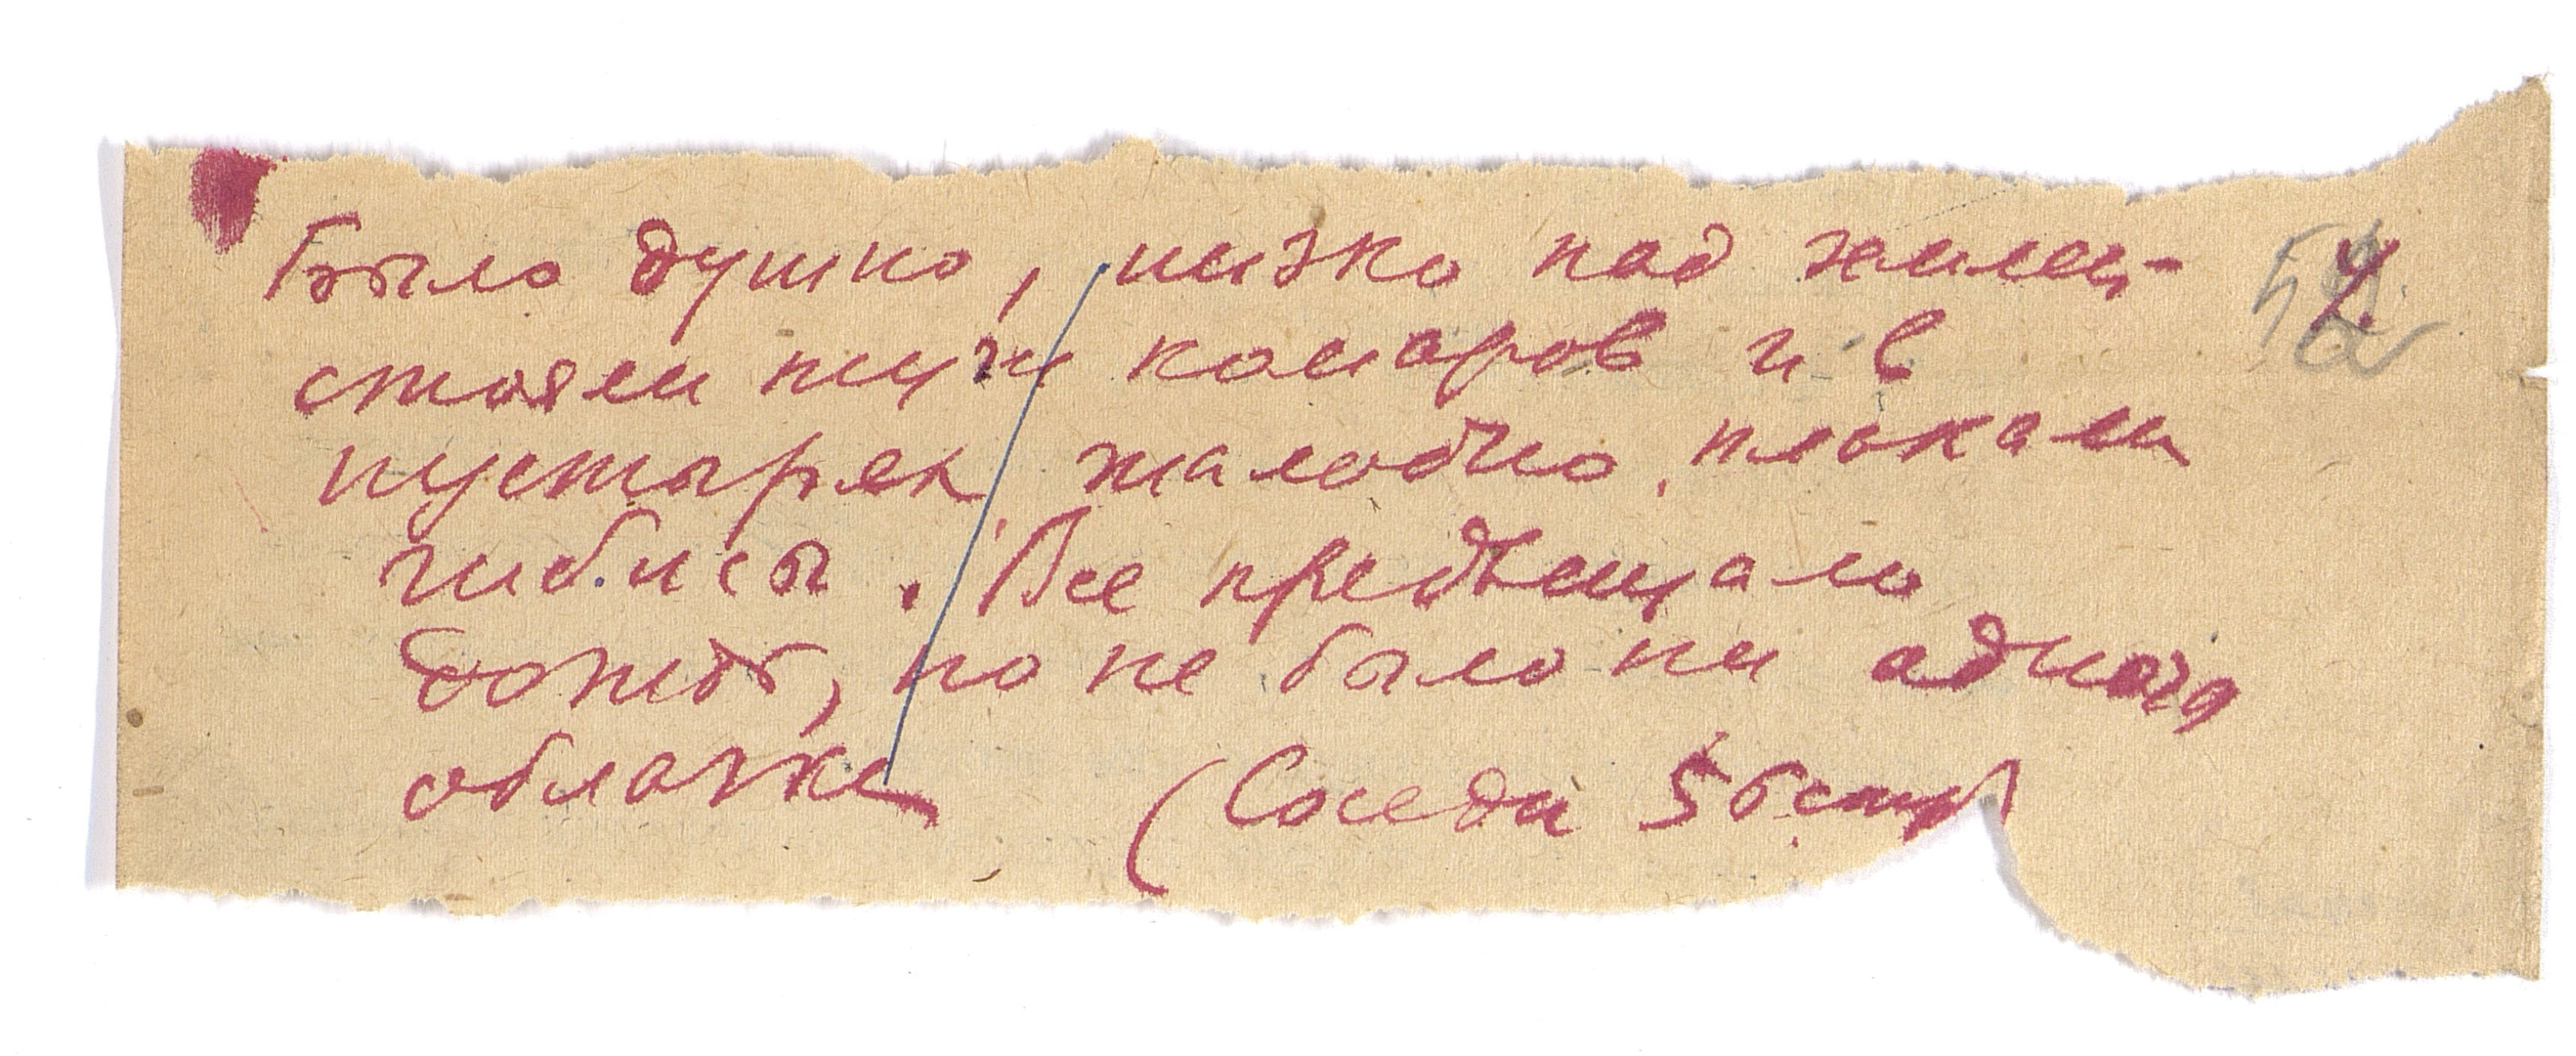 Было душно, низко над землей
стояли тучи комаров и в
пустырях жалобно плакали
чибисы. Все предвещало
дождь, но не было ни одного
облачка (Соседи стр